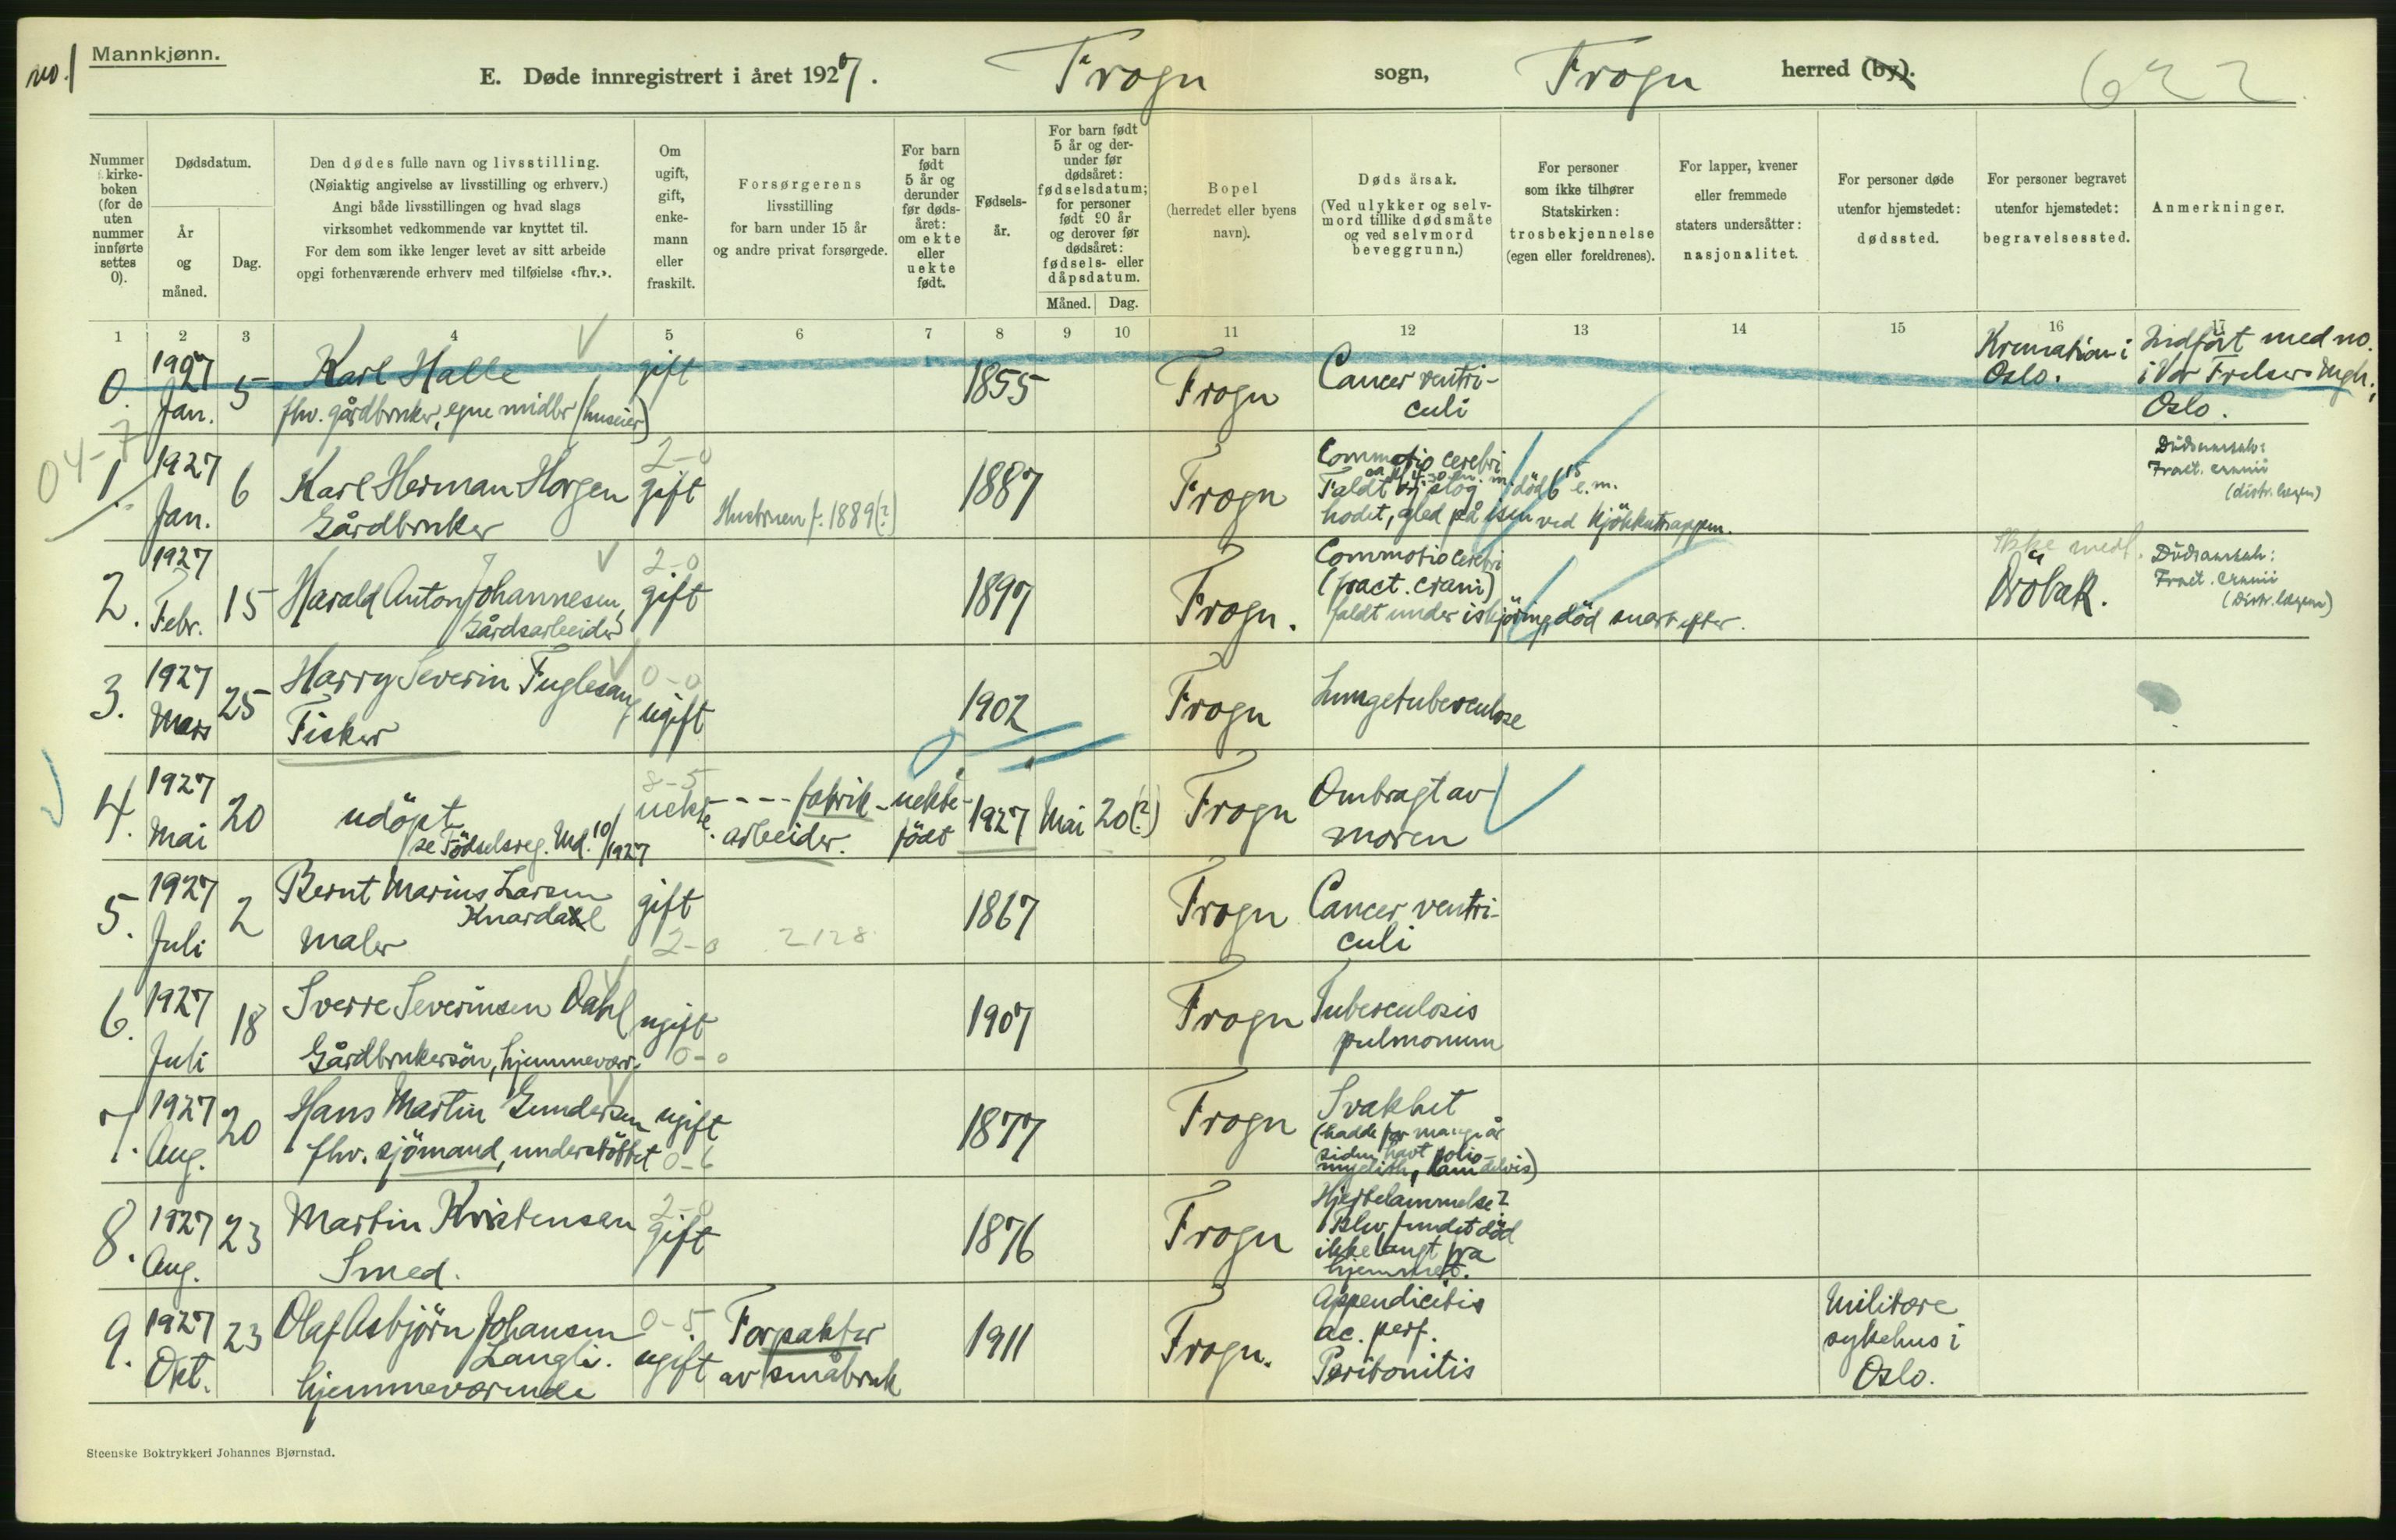 no. 1
Mannkjønn.
E. Døde innregistrert i året 1927. Frogn sogn, Frogn herred (by). 622
Nummer i kirke-boken (for de uten nummer innførte settes 0).
Dødsdatum.
År og måned.
Dag.
Den dødes fulle navn og livsstilling.
(Nøiaktig angivelse av livsstilling og erhverv.)
Angi både livsstillingen og hvad slags
virksomhet vedkommende var knyttet til.
For dem som ikke lenger levet av sitt arbeide
opgi forhenværende erhverv med tilføielse «fhv.».
Om ugift, gift, enke-mann eller fraskilt.
Forsørgerens
livsstilling
for barn under 15 år
og andre privat forsørgede.
For barn født 5 år og derunder før døds-året: om ekte eller uekte født.
Fødsels-år.
For barn født 5 år og der-under før dødsåret: fødselsdatum; for personer født 90 år og derover før dødsåret: fødsels- eller dåpsdatum.
Måned. Dag.
Bopel
(herredet eller byens
navn).
Dødsårsak.
(Ved ulykker og selv-
mord tillike dødsmåte
og ved selvmord
beveggrunn.)
For personer
som ikke tilhører
Statskirken:
trosbekjennelse
(egen eller foreldrenes).
For lapper, kvener
eller fremmede
staters undersåtter:
nasjonalitet.
For personer døde
utenfor hjemstedet:
dødssted.
For personer begravet
utenfor hjemstedet:
begravelsessted.
Anmerkninger.
1 2 3 4 5 6 7 8 9 10 11 12 13 14 15 16 17
0. 1927 Jan. 5 Karl Halle gift 1855 Frogn Cancer ventri-
culi
fhv. gårdbruker, egne midler (huseier)
Kremation i
Oslo.
Indført med no.
i Vor Frelsers Mgh.,
Oslo.
04-7
1. 1927 Jan. 6 Karl Herman Horgen 2-0 gift 1887 Frogn
Gårdbruker
Hustruen f. 1889(?)
Commotio cerebri
Faldt og slog død 6 e.m.
hodet, gled på isen ved kjøkkentrappen.
Dødsaarsak:
Fract. cranii
(distr.lægen)
2. 1927 Febr. 15 Harald Anton Johannesen, 2-0 gift 1897 Frogn.
Gårdsarbeider
Commotio cerebri
(fract. crani)
faldt under iskjøring, død snart efter.
Ikke medt.
Drøbak.
Dødsaarsak:
Fract. cranii
(distr.lægen)
3. 1927 Mars 25 Harry Severin Fuglesang 0-0 ugift 1902 Frogn Lungetuberculose
Fisker
4. 1927 Mai 20 udöpt 8-5 uekte. ---- fabrik-
arbeider. uekte
født 1927 Mai 20(?) Frogn Ombragt av
moren
se Fødselsreg. Md. 10/1927
5. 1927 Juli 2 Bernt Marius Larsen
Knardahl gift 1867 Frogn Cancer ventri-
culi
Maler 2-0 2128
6. 1927 Juli 18 Sverre Severinsen Dahl ugift 1907 Frogn Tuberculosis
pulmonum
Gårdbrukersön, hjemmevær. 0-0
7. 1927 Aug. 20 Hans Martin Gundersen ugift 1877 Frogn Svakhet
fhv. sjömand, understöttet 0-6
(hadde for mange år
siden havt polio-
myelitis, lam delvis)
8. 1927 Aug. 23 Martin Kristensen 2-0 gift 1876 Frogn
Smed.
Hjertelammelse?
Blev fundet död
ikke langt fra
hjemmet.
9. 1927 Okt. 23 Olaf Asbjörn Johansen
Langli. 0-5 ugift Forpakter
av småbruk 1911 Frogn.
hjemmeværende
Appendicitis
ac. perf.
Peritonitis
Militære
sykehus i
Oslo.
Steenske Boktrykkeri Johannes Bjørnstad.